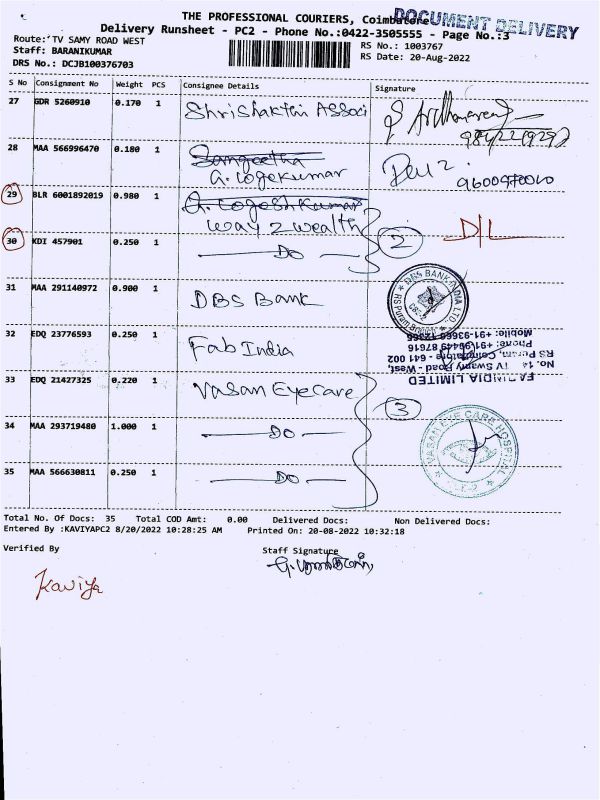 THE PROFESSIONAL COURIERS, Coimbatore
DOCUMENT DELIVERY
Delivery Runsheet - PC2 - Phone No.:0422-3505555 - Page No.:3
Route: TV SAMY ROAD WEST
RS No.: 1003767
Staff: BARANIKUMAR
RS Date: 20-Aug-2022
DRS No.: DCJB100376703
S No Consignment No Weight PCS Consignee Details Signature
27 GDR 5260910 0.170 1 Shrishakthi Associ
28 MAA 566996470 0.180 1 Sangeetha
G. Logekumar
29 BLR 6001892019 0.980 1 G. Logeshkumar
way 2 wealth 2 D/L
30 KDI 457901 0.250 1 DO
31 MAA 291140972 0.900 1 DBS Bank
DBS BANK INDIA LTD.
RS Puram Branch
32 EDQ 23776593 0.250 1 Fab India
FABINDIA LIMITED
No. 14 TV Swamy Road - West,
RS Puram, Coimbatore - 641 002
Phone: +91-96449 87616
33 EDQ 21427325 0.220 1 Vasan Eye Care 3
VASAN EYE CARE HOSPITAL
34 MAA 293719480 1.000 1 DO
35 MAA 566630811 0.250 1 DO
Total No. Of Docs: 35 Total COD Amt: 0.00 Delivered Docs: Non Delivered Docs:
Entered By :KAVIYAPC2 8/20/2022 10:28:25 AM Printed On: 20-08-2022 10:32:18
Verified By Staff Signature
Kaviya